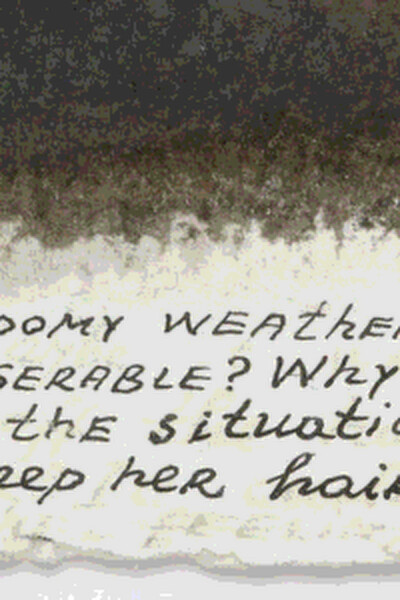 OOMY WEATHE
SERABLE? Why
the situati
eep her hair